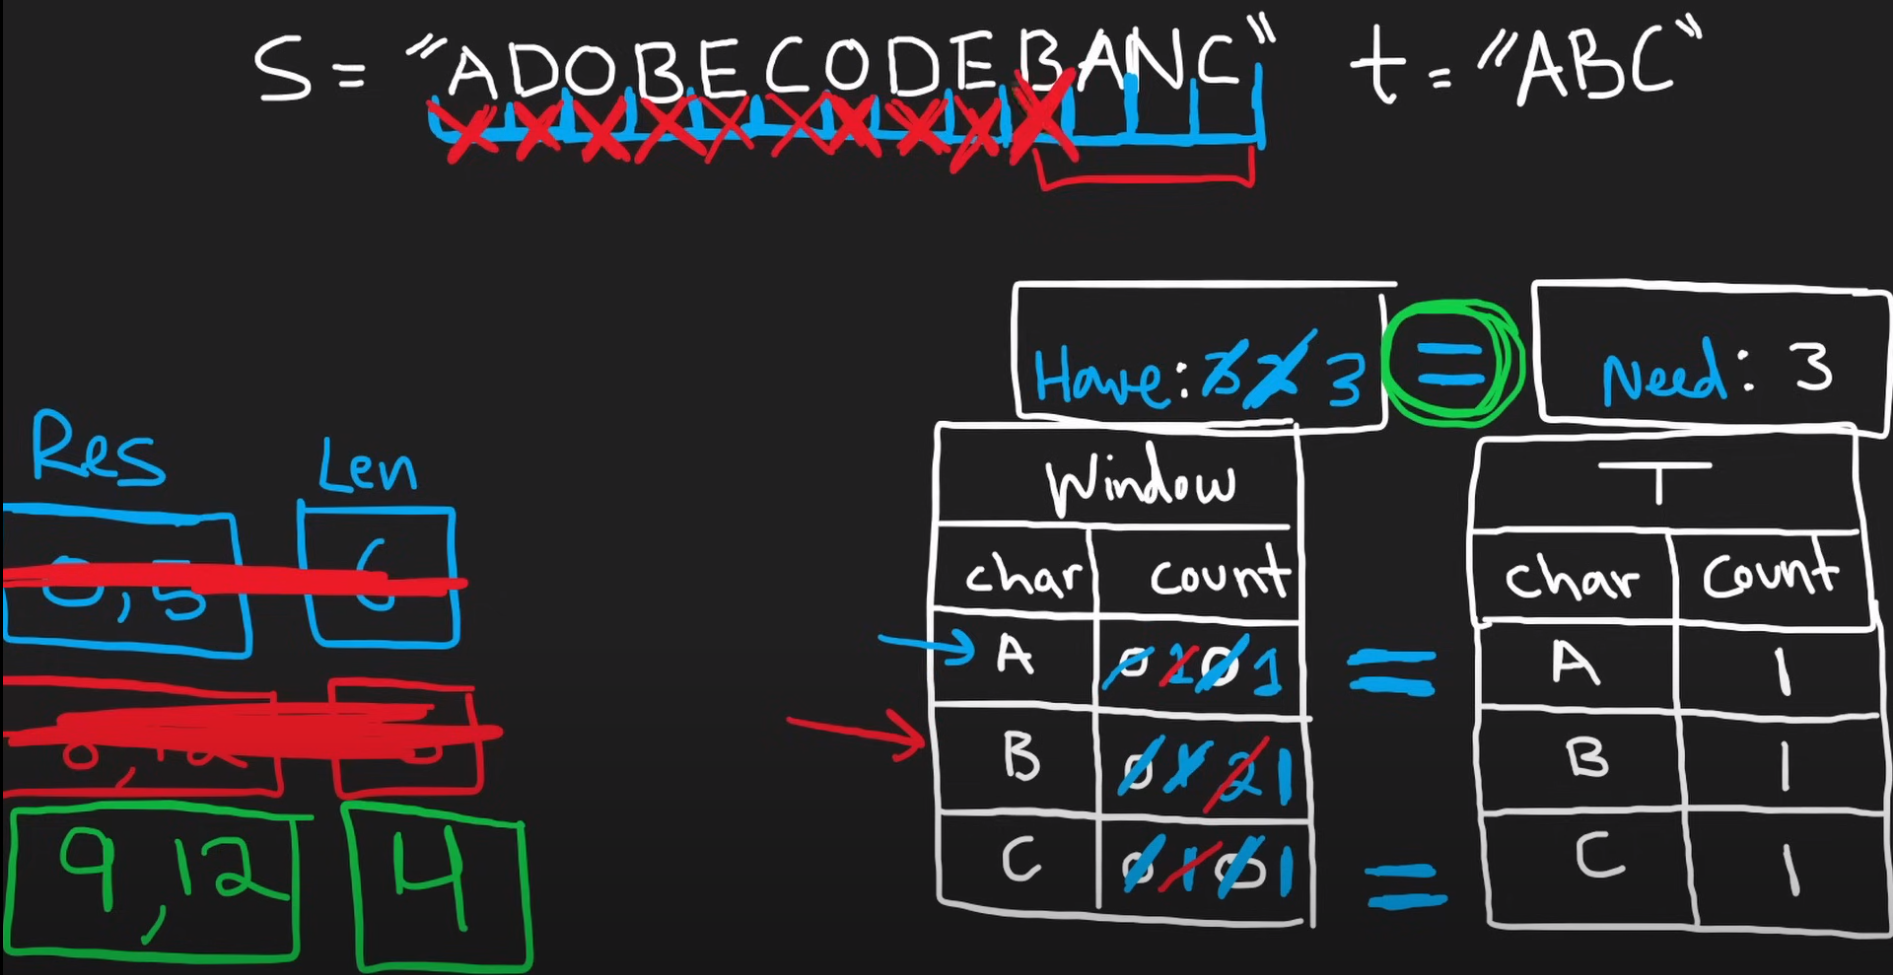 S = "ADOBECODEBANC" t = "ABC"
Have: 3 2 3 = Need: 3
Res Len
0,5 6
9,12 4
Window
char count
A 0 1 0 1 =
B 0 1 2 1
C 0 1 0 1 =
T
char count
A 1
B 1
C 1